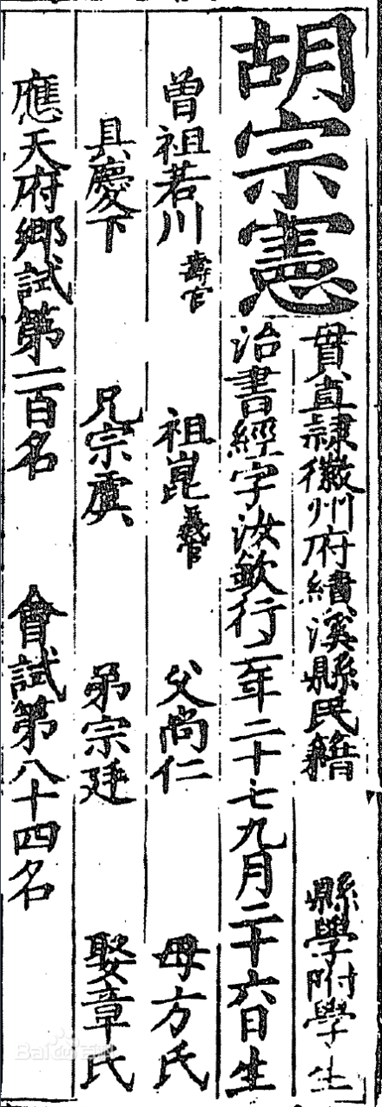 胡宗憲
貫直隸徽州府績溪縣民籍 縣學附學生
治書經字汝欽行二年二十七九月二十六日生
曾祖若川壽官 祖崑義官 父尚仁 母方氏
具慶下 兄宗虞 弟宗廷 娶章氏
應天府鄉試第一百名 會試第八十四名
Bai百科